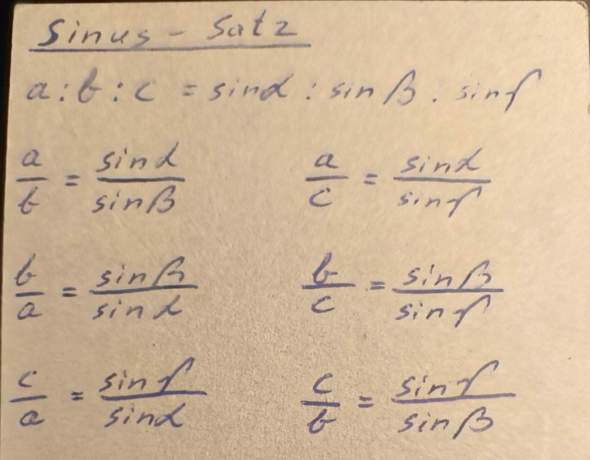 Sinus - Satz
a : b : c = sin α : sin β : sin γ
a/b = sin α / sin β    a/c = sin α / sin γ
b/a = sin β / sin α    b/c = sin β / sin γ
c/a = sin γ / sin α    c/b = sin γ / sin β